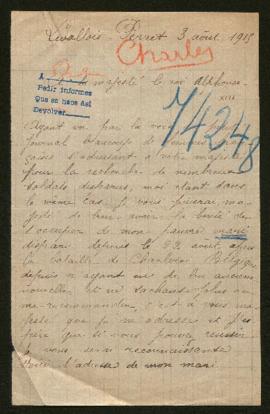 Levallois Perret 3 août 1915
Charles
A
Pedir informes
Que se hace asi
Devolver
sa majesté le roi Alphonse
XIII
74248
Ayant vu par la voie
journal beaucoup de femmes fran
çaises s'adressant à votre majesté
pour la recherche de nombreux
soldats disparus, moi étant dans
le même cas je vous prierai ma
jesté de bien avoir la bonté de
s'occuper de mon pauvre mari
disparu depuis le 22 août après
la bataille de Belgique
depuis n'ayant eu de lui aucune
nouvelle et ne sachant plus à
me recommander, c'est à vous ma
jesté que je m'adresse et j'es
père que si vous pouvez réussir
je vous serai reconnaissante
Voici l'adresse de mon mari